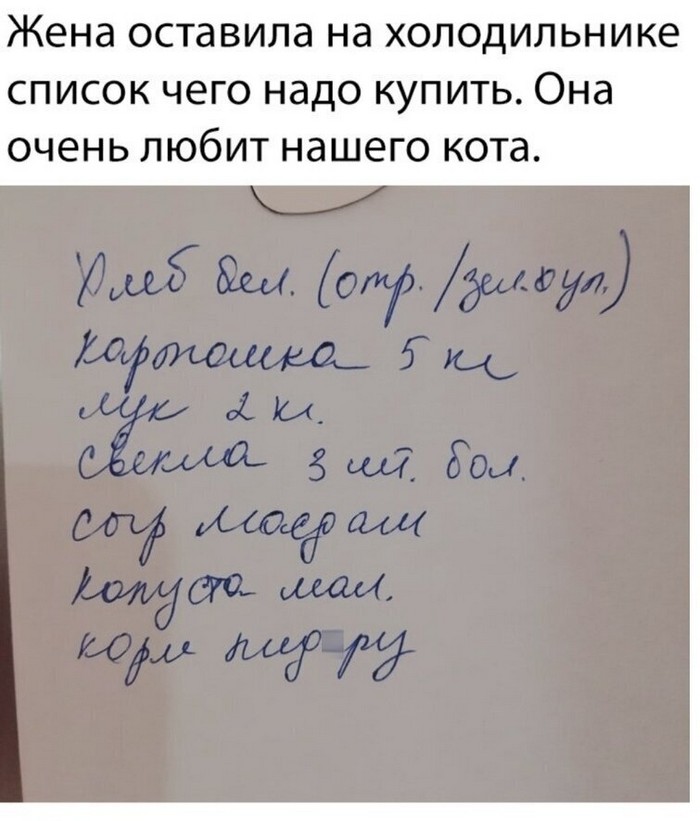 Жена оставила на холодильнике
список чего надо купить. Она
очень любит нашего кота.
Хлеб бел. (отр./зел.бул.)
картошка 5 кг
лук 2 кг.
свекла 3 шт. бол.
сыр Маасдам
капуста мал.
корм